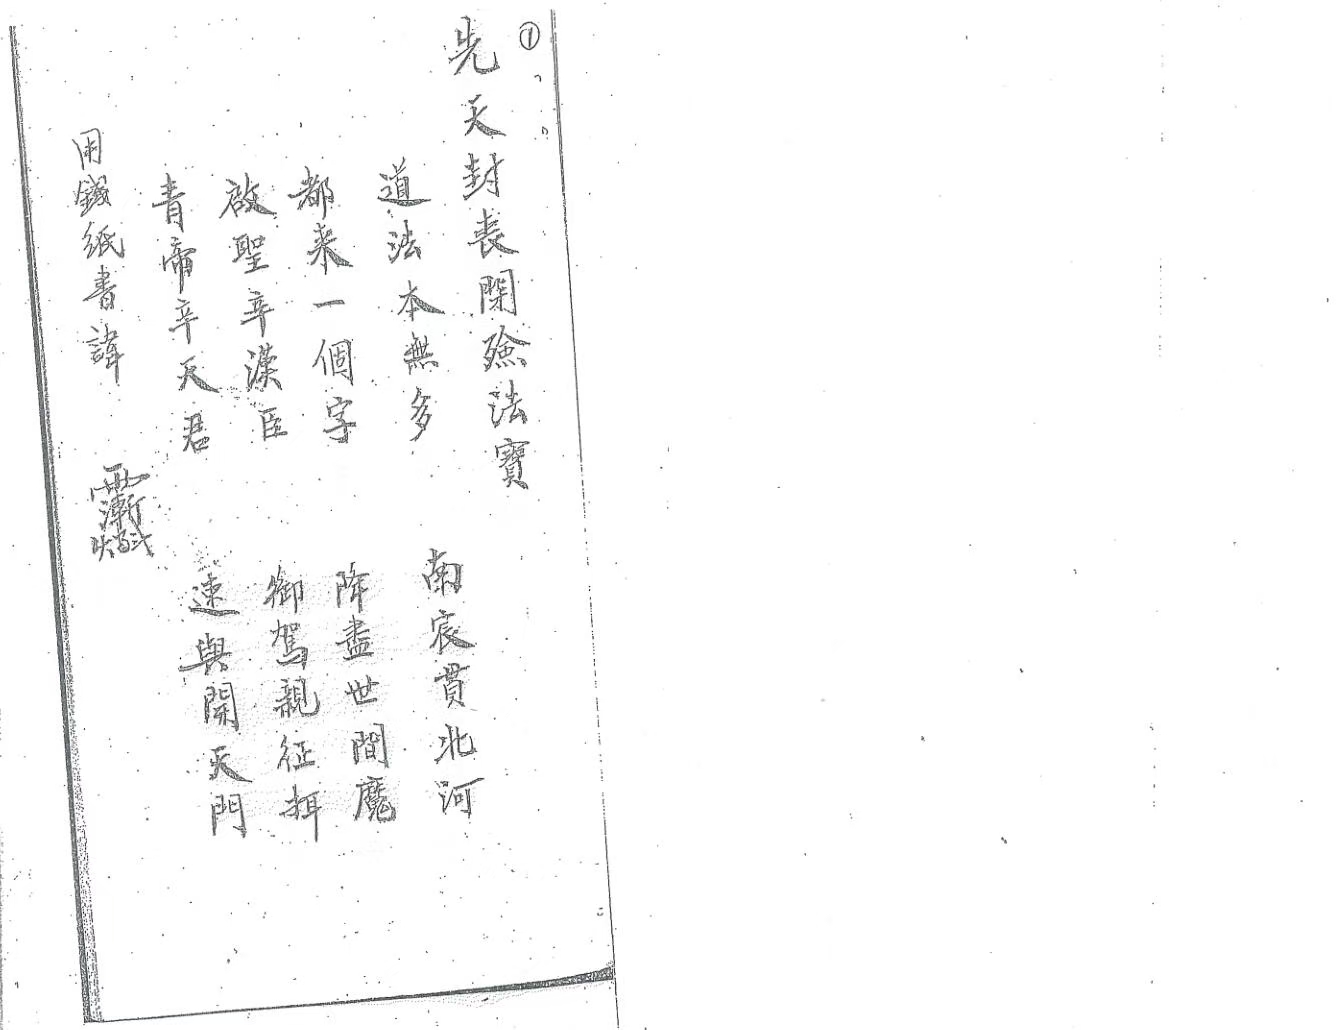 ①
先天封丧閉殮法寶
道法本無多 南宸貫北河
都来一個字 降盡世間魔
啟聖辛漢臣 御駕親征
青帝辛天君 速與開天門
用錢紙書諱